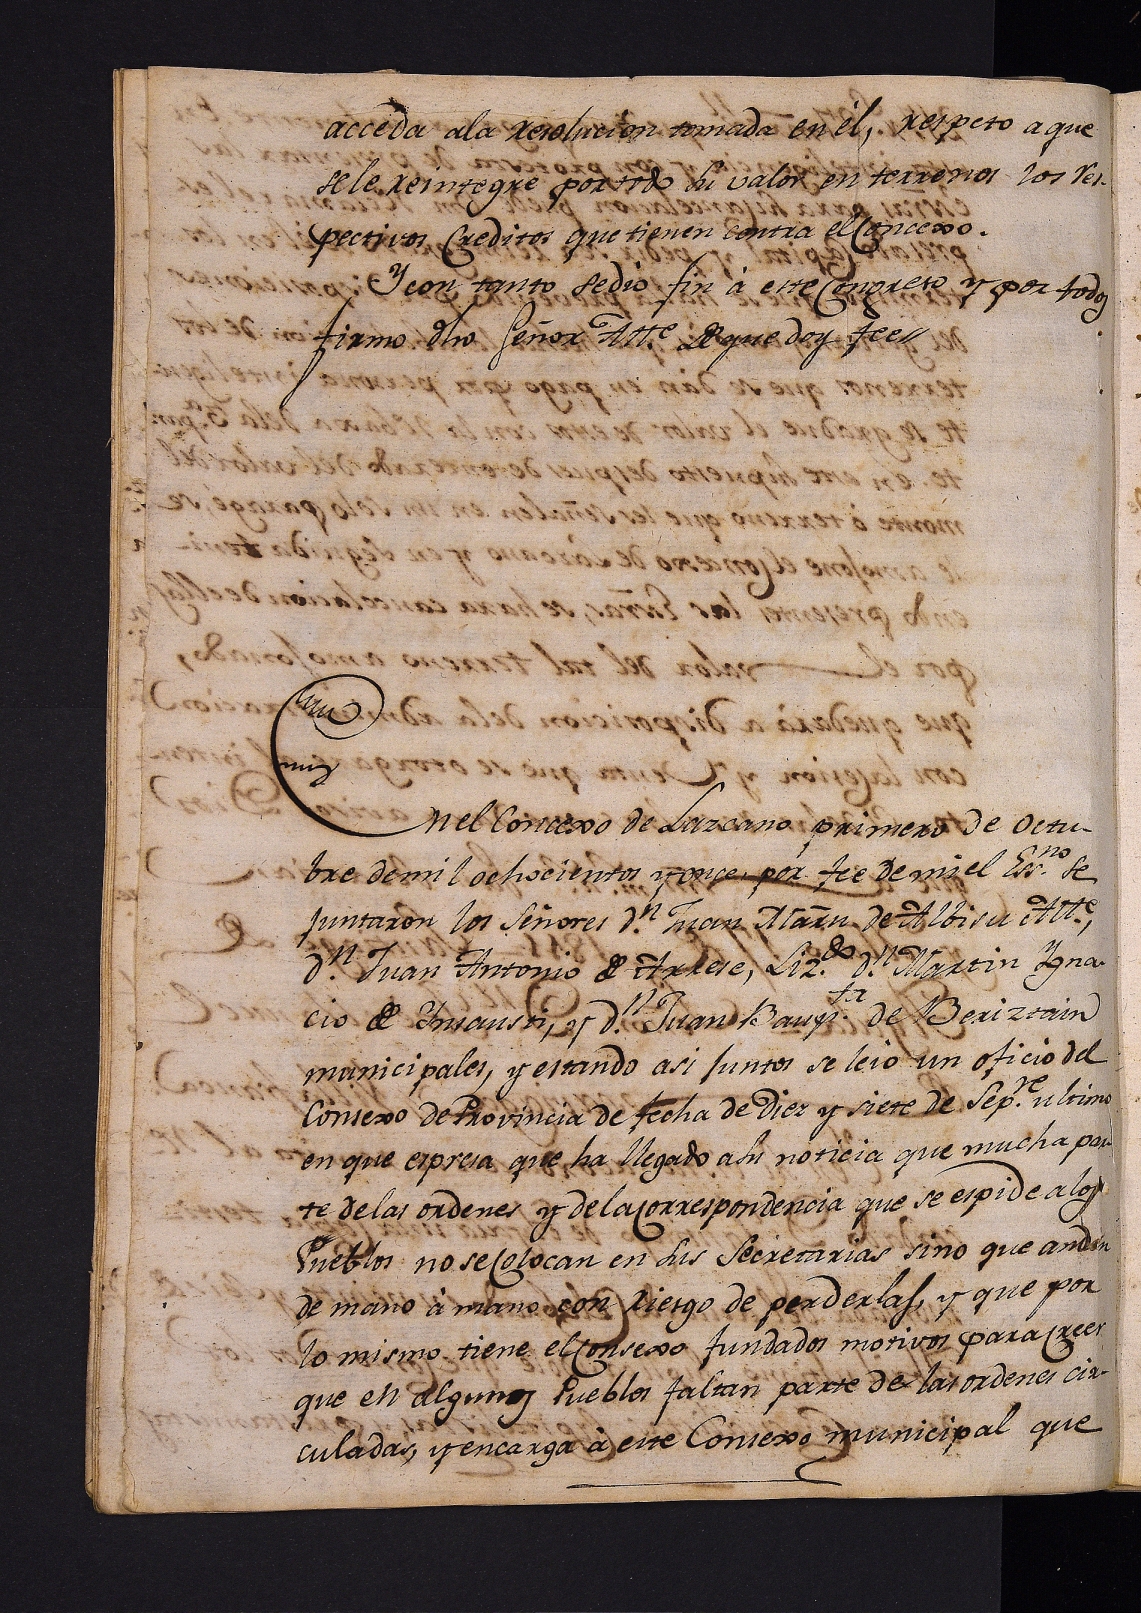 acceda ala resolucion tomada en él, respeto a que
se le reintegre por todo su valor en terrenos los res-
pectivos Creditos que tienen contra el Concexo.
Y con tanto se dió fin á este Congreso y por todos
firmo dho Señor Alte. de que doy fee//
En el Concexo de Lazcano primero de Octu-
bre de mil ochocientos y once, por fee de mi el Essno. se
juntaron los Señores dn. Juan Martn de Albisu Alte.,
dn. Juan Antonio de Arrese, Lizdo. dn. Martin Ygna-
cio de Insausti, y dn. Juan Baupta. de Beriztain
municipales, y estando asi juntos se leió un oficio del
Consexo de Provincia de fecha de Diez y siete de Sepre. ultimo
en que espresa que ha llegado a su noticia que mucha par-
te de las ordenes y de la correspondencia que se espide a los
Pueblos no se colocan en sus Secretarias sino que andan
de mano á mano con riesgo de perderlas, y que por
lo mismo tiene el Consexo fundados motivos para creer
que en algunos Pueblos faltan parte de las ordenes cir-
culadas, y encarga á este Consexo municipal que